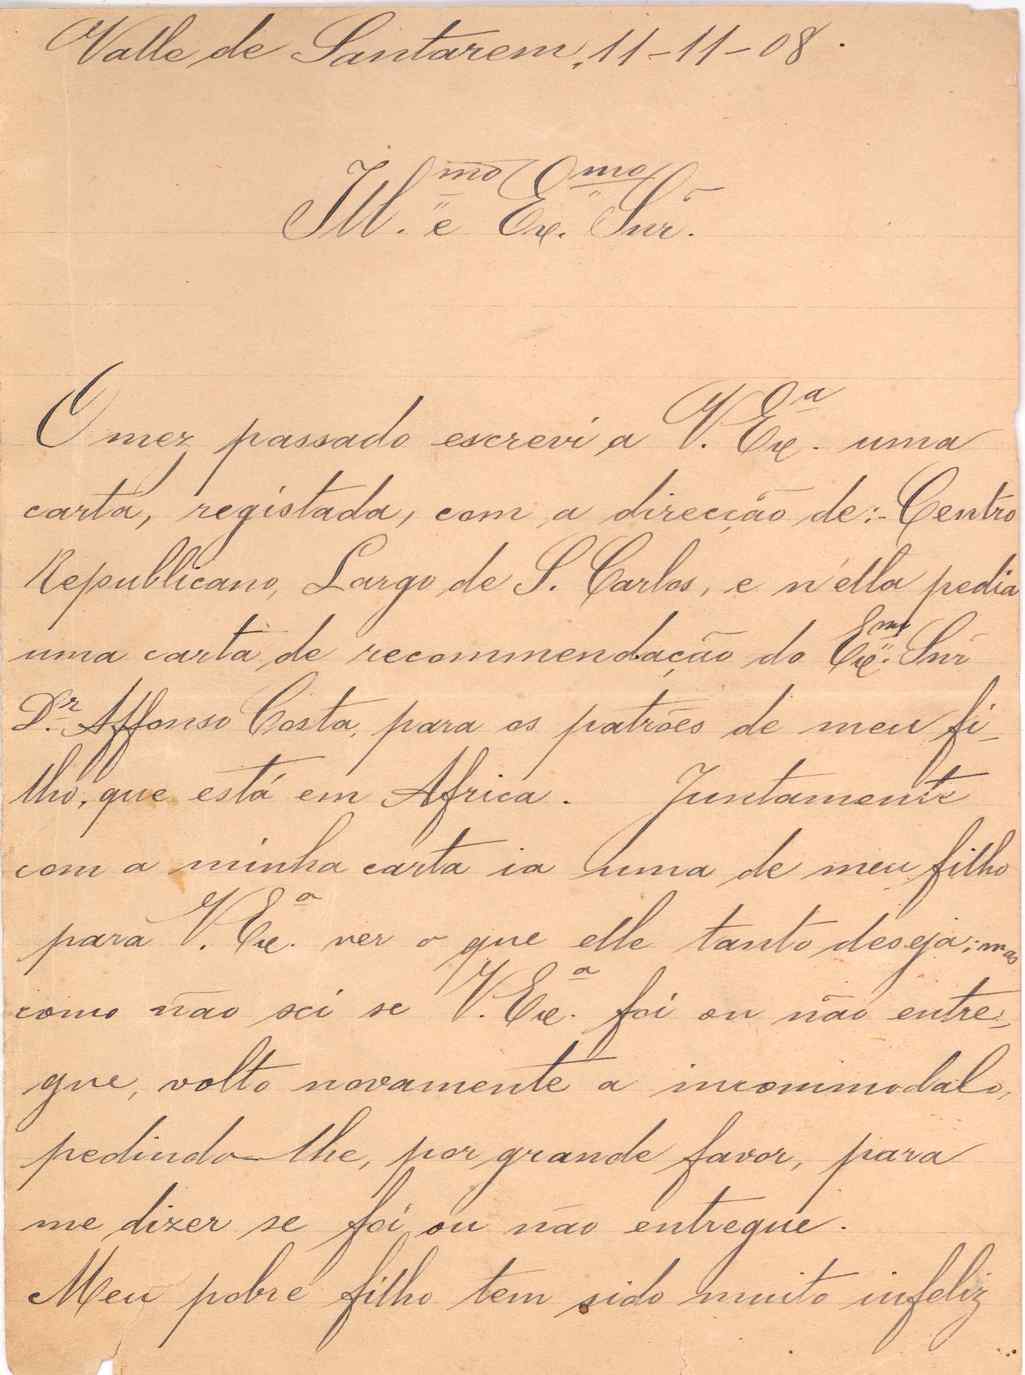 Valle de Santarem, 11-11-08.
Ill.mo e Ex.mo Snr.
O mez passado escrevi a V. Ex.a uma
carta, registada, com a direcção de:- Centro
Republicano, Largo de S. Carlos, e n'ella pedia
uma carta de recommendação do Ex.mo Snr
Dr. Affonso Costa, para os patrões de meu fi-
lho, que está em Africa. Juntamente
com a minha carta ia uma de meu filho
para V. Ex.a ver o que elle tanto deseja; mas
como não sei se V. Ex.a foi ou não entre-
gue, volto novamente a incommodalo,
pedindo-lhe, por grande favor, para
me dizer se foi ou não entregue.
Meu pobre filho tem sido muito infeliz